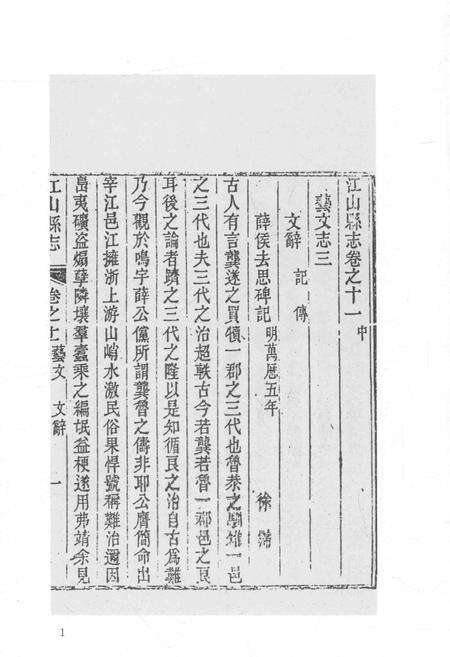 江山縣志卷之十一中
藝文志三
文辭 記 傳
薛侯去思碑記明萬厯五年 徐霈
古人有言龔遂之買犢一郡之三代也魯恭之馴雉一邑
之三代也夫三代之治超軼古今若龔若魯一郡邑之良
耳後之論者躋之三代之隆以是知循良之治自古爲難
乃今觀於鳴宇薛公儻所謂龔魯之儔非耶公膺簡命出
宰江邑江擁浙上游山峭水激民俗果悍號稱難治邇因
島夷礦盜煽孽隣壤羣蠹乘之編氓益梗遂用弗靖余見
江山縣志 卷之十一藝文 文辭 一
1